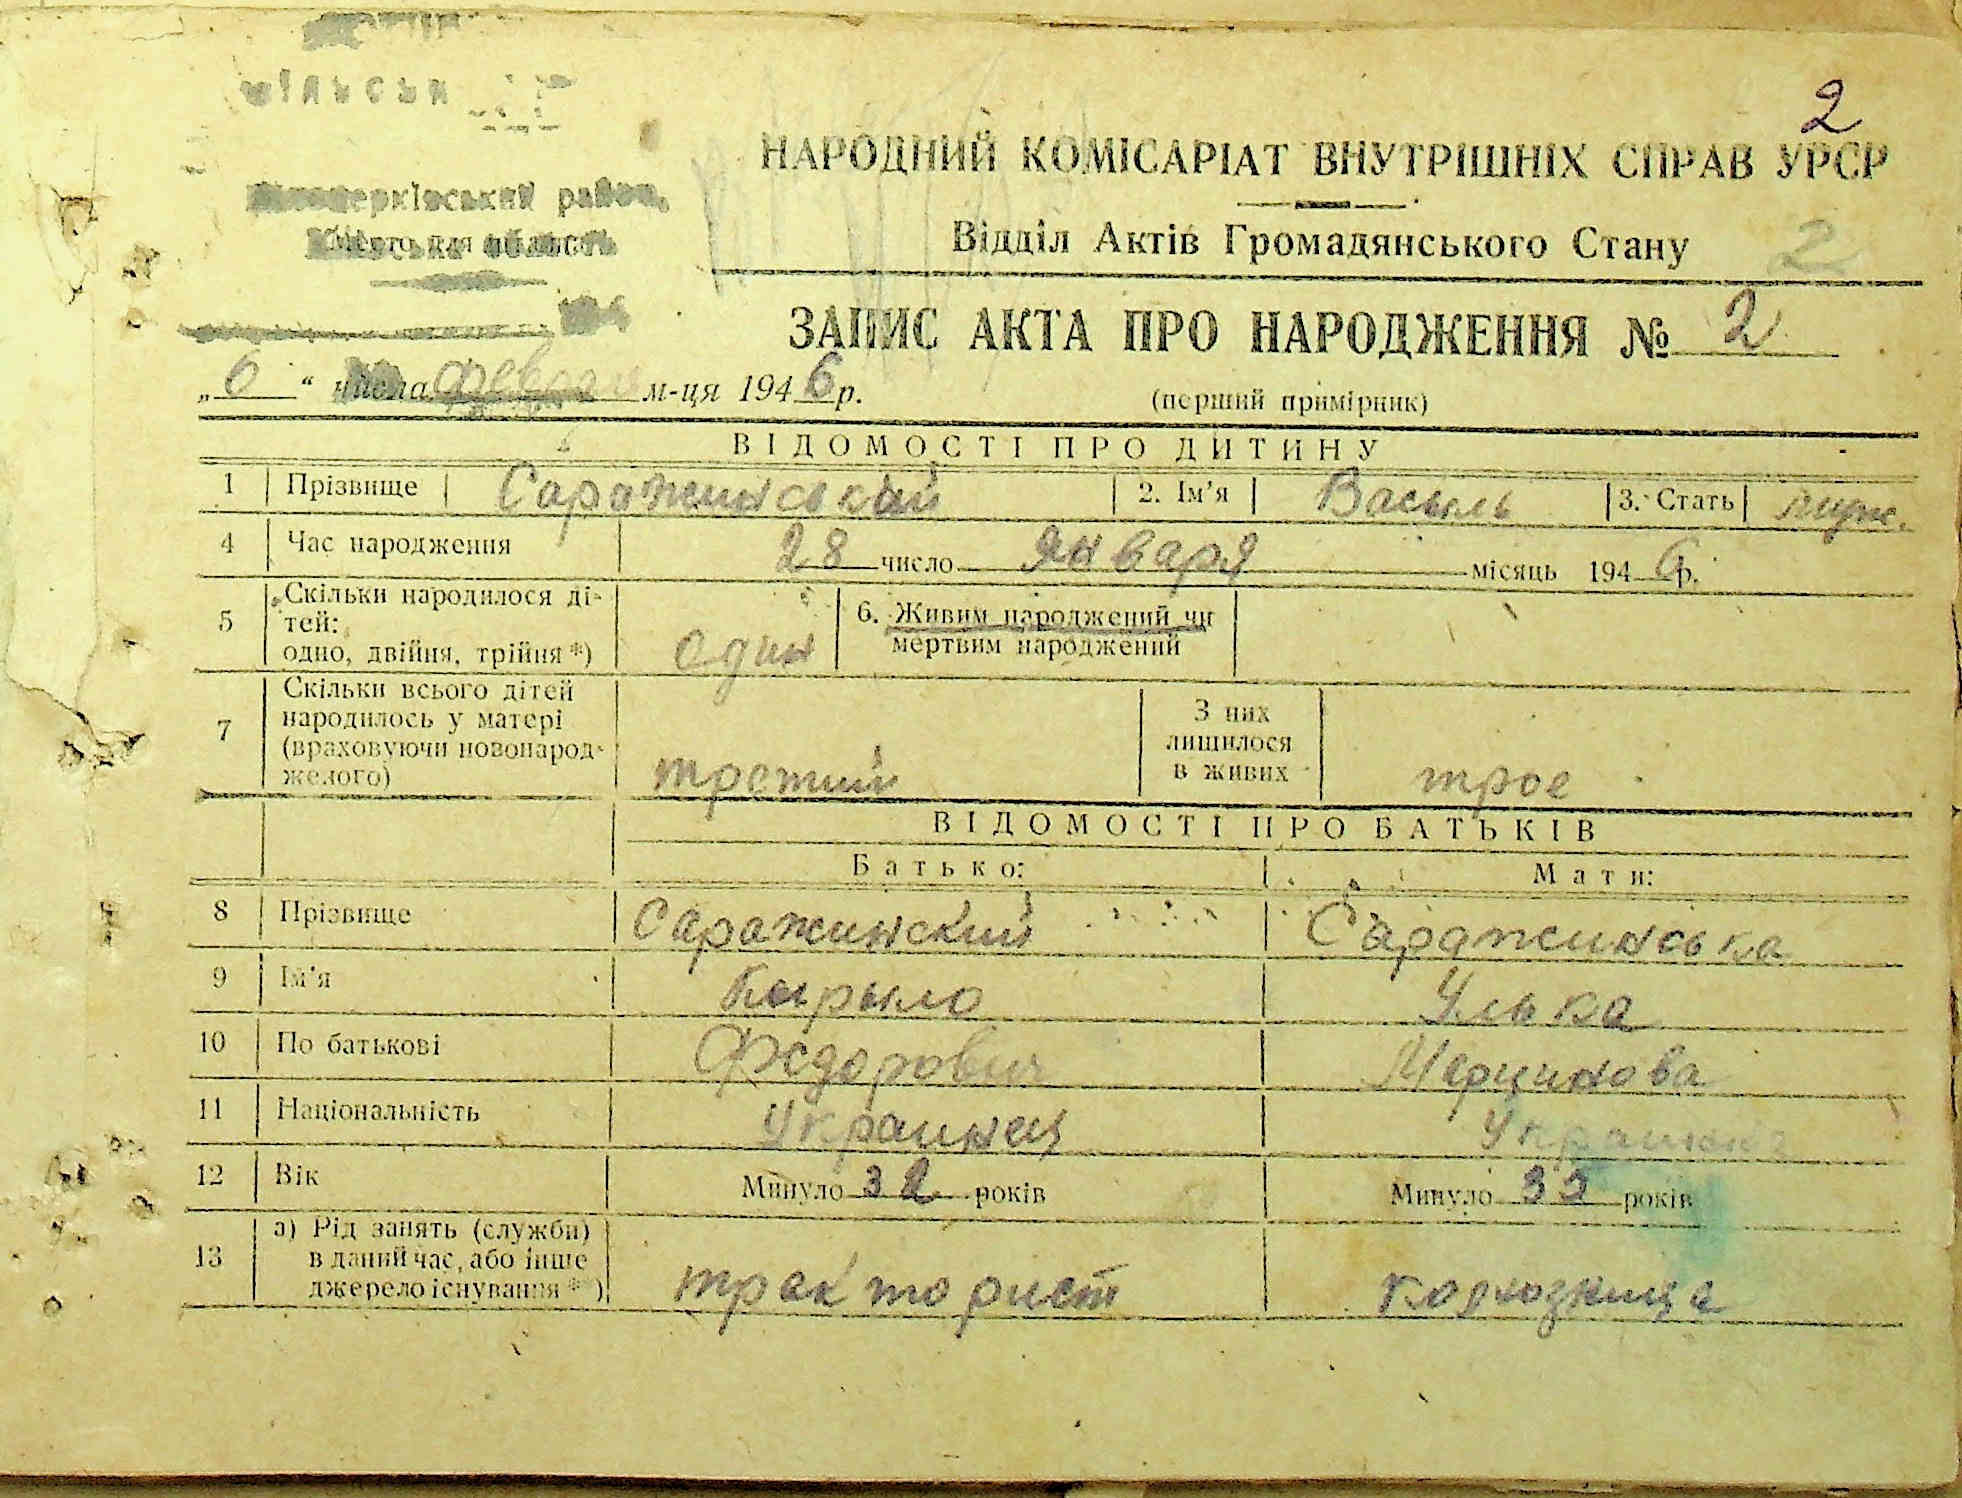 2
НАРОДНИЙ КОМІСАРІАТ ВНУТРІШНІХ СПРАВ УРСР
район,
Відділ Актів Громадянського Стану 2
ЗАПИС АКТА ПРО НАРОДЖЕННЯ № 2
„6“ числа февраля м-ця 1946 р.
(перший примірник)
ВІДОМОСТІ ПРО ДИТИНУ
1 Прізвище Саражинський 2. Ім'я Василь 3. Стать муж.
4 Час народження 28 число января місяць 1946 р.
5 Скільки народилося ді-
тей:
одно, двійня, трійня *) один
6. Живим народжений чи
мертвим народжений
7 Скільки всього дітей
народилось у матері
(враховуючи новонарод-
желого) третий
З них
лишилося
в живих трое
ВІДОМОСТІ ПРО БАТЬКІВ
Батько: Мати:
8 Прізвище Саражинский Саражинська
9 Ім'я Кирыло Улька
10 По батькові Федорович Марцинова
11 Національність Украинец Украинка
12 Вік Минуло 32 років Минуло років
13 а) Рід занять (служби)
в даний час, або інше
джерело існування *) тракторист колхозница